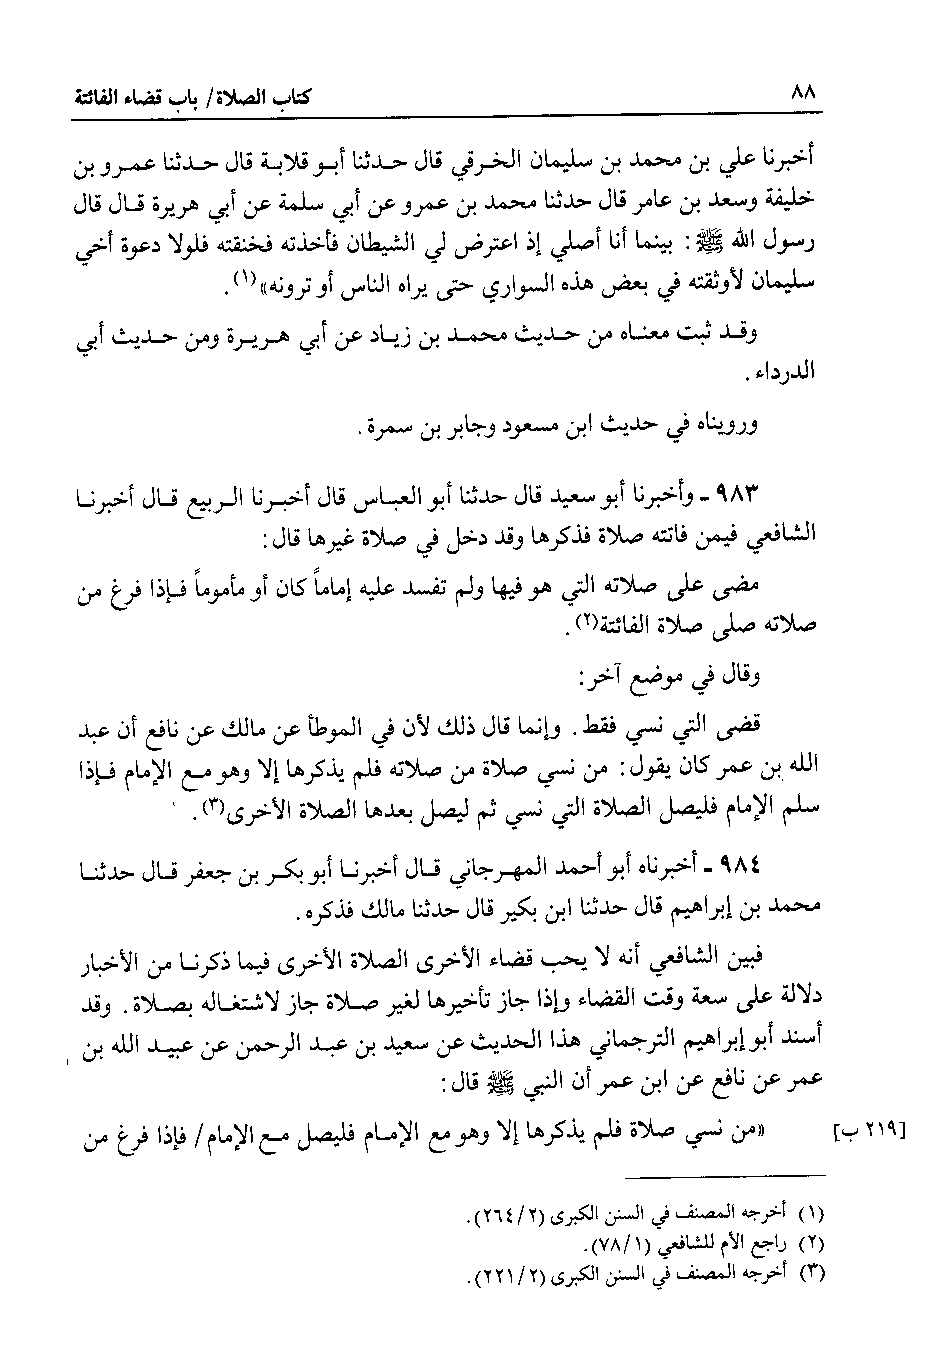 ٨٨
كتاب الصلاة/ باب قضاء الفائتة
أخبرنا علي بن محمد بن سليمان الخرقي قال حدثنا أبو قلابة قال حدثنا عمرو بن
خليفة وسعد بن عامر قال حدثنا محمد بن عمرو عن أبي سلمة عن أبي هريرة قال قال
رسول الله ﷺ: بينما أنا أصلي إذ اعترض لي الشيطان فأخذته فخنقته فلولا دعوة أخي
سليمان لأوثقته في بعض هذه السواري حتى يراه الناس أو ترونه»(١).
وقد ثبت معناه من حديث محمد بن زياد عن أبي هريرة ومن حديث أبي
الدرداء.
ورويناه في حديث ابن مسعود وجابر بن سمرة.
٩٨٣ - وأخبرنا أبو سعيد قال حدثنا أبو العباس قال أخبرنا الربيع قال أخبرنا
الشافعي فيمن فاتته صلاة فذكرها وقد دخل في صلاة غيرها قال:
مضى على صلاته التي هو فيها ولم تفسد عليه إماماً كان أو مأموماً فإذا فرغ من
صلاته صلى صلاة الفائتة(٢).
وقال في موضع آخر:
قضى التي نسي فقط. وإنما قال ذلك لأن في الموطأ عن مالك عن نافع أن عبد
الله بن عمر كان يقول: من نسي صلاة من صلاته فلم يذكرها إلا وهو مع الإمام فإذا
سلم الإمام فليصل الصلاة التي نسي ثم ليصل بعدها الصلاة الأخرى(٣).
٩٨٤ - أخبرناه أبو أحمد المهرجاني قال أخبرنا أبو بكر بن جعفر قال حدثنا
محمد بن إبراهيم قال حدثنا ابن بكير قال حدثنا مالك فذكره.
فبين الشافعي أنه لا يحب قضاء الأخرى الصلاة الأخرى فيما ذكرنا من الأخبار
دلالة على سعة وقت القضاء وإذا جاز تأخيرها لغير صلاة جاز لاشتغاله بصلاة. وقد
أسند أبو إبراهيم الترجماني هذا الحديث عن سعيد بن عبد الرحمن عن عبيد الله بن
عمر عن نافع عن ابن عمر أن النبي ﷺ قال:
[٢١٩ ب] «من نسي صلاة فلم يذكرها إلا وهو مع الإمام فليصل مع الإمام/ فإذا فرغ من
(١) أخرجه المصنف في السنن الكبرى (٢/ ٢٦٤).
(٢) راجع الأم للشافعي (١/ ٧٨).
(٣) أخرجه المصنف في السنن الكبرى (٢/ ٢٢١).